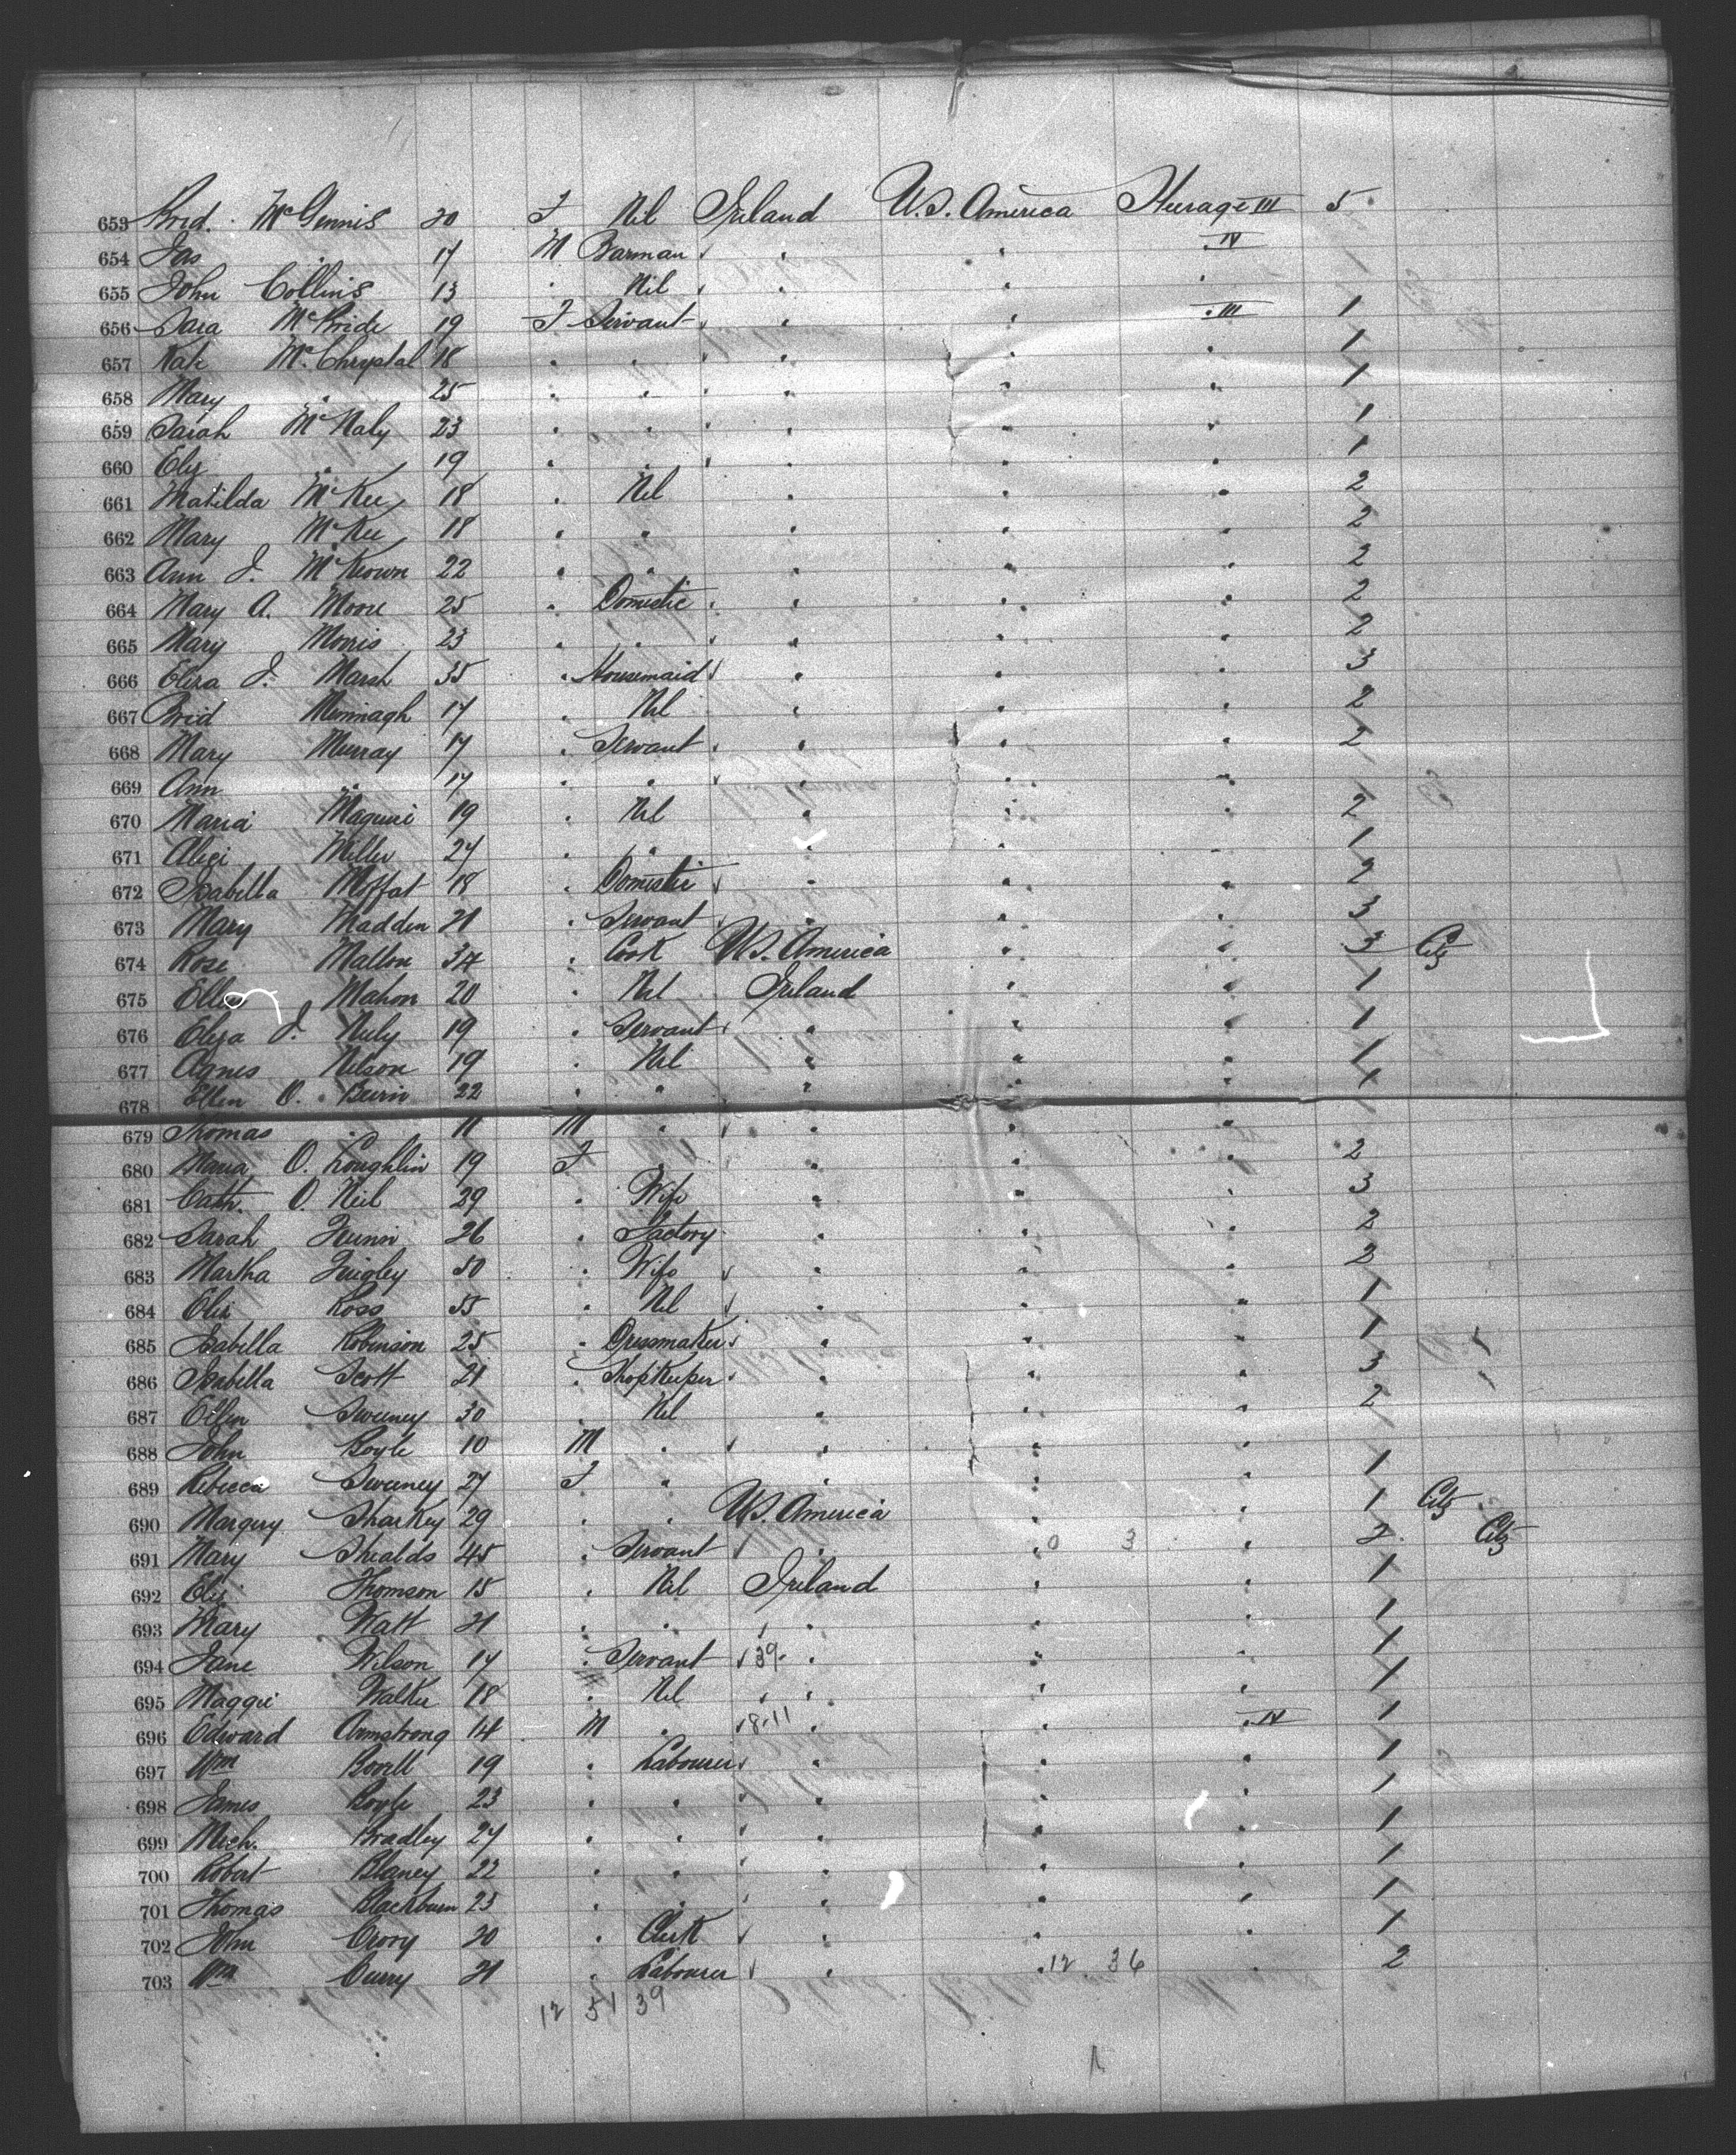 653 Brid. McGinnis 20 F Nil Ireland U.S. America Steerage III 5
654 Jas " 17 M Barman " " " IV
655 John Collins 13 " Nil " " "
656 Sara McBride 19 F Servant " " " III 1
657 Kate McChrystal 18 " " " " " 1
658 Mary " 25 " " " " " 1
659 Sarah McNaly 23 " " " " " 1
660 Eliz " 19 " " " " " 1
661 Matilda McKee 18 " Nil " " " 2
662 Mary McKee 18 " " " " " 2
663 Ann J. McKeown 22 " " " " " 2
664 Mary A. Moore 25 " Domestic " " " 2
665 Mary Morris 23 " " " " " 2
666 Eliza J. Marsh 35 " Housemaid " " " 3
667 Brid Mennagh 17 " Nil " " " 2
668 Mary Murray 17 " Servant " " " 2
669 Ann " 17 " " " " "
670 Maria Maguire 19 " Nil " " " 2
671 Miller 27 " " " " " 1
672 Isabella Moffat 18 " Domestic " " " 2
673 Mary Madden 21 " Servant " " " 3
674 Rose Mallon 34 " Cook U.S. America " " 3 Citz
675 Ellen Mahon 20 " Nil Ireland " " 1
676 Eliza J. Neily 19 " Servant " " " 1
677 Agnes Nelson 19 " Nil " " " 1
678 Ellen O. Beirn 22 " " " " " 1
679 Thomas " 11 M " " " "
680 Maria O. Loughlin 19 F " " " 2
681 Cath. O. Neil 29 " Wife " " " 3
682 Sarah Quinn 26 " Factory " " " 2
683 Martha Quigley 50 " Wife " " " 2
684 Eliz Ross 55 " Nil " " " 1
685 Isabella Robinson 25 " Dressmaker " " " 1
686 Isabella Scott 21 " ShopKeeper " " " 3
687 Ellen Sweeney 30 " Nil " " " 2
688 John Boyle 10 M " " " "
689 Rebecca Sweeney 27 F " " " " 1
690 Margery Sharkey 29 " " U.S. America " " 1 Citz
691 Mary Shealds 45 " Servant " " 0 3 " 2 Citz
692 Eliz Thomson 15 " Nil Ireland " " 1
693 Mary Watt 21 " " " " " 1
694 Jane Wilson 17 " Servant 39 " " " 1
695 Maggie Walker 18 " Nil " " " 1
696 Edward Armstrong 14 M " 8-11 " " IV 1
697 Wm Bovill 19 " Labourer " " " 1
698 James Boyle 23 " " " " " 1
699 Mich. Bradley 27 " " " " " 1
700 Robert Blaney 22 " " " " " 1
701 Thomas Blackburn 23 " " " " " 1
702 John Crory 20 " Clerk " " " 1
703 Wm Curry 21 " Labourer " " 12 36 " 2
12 51 39